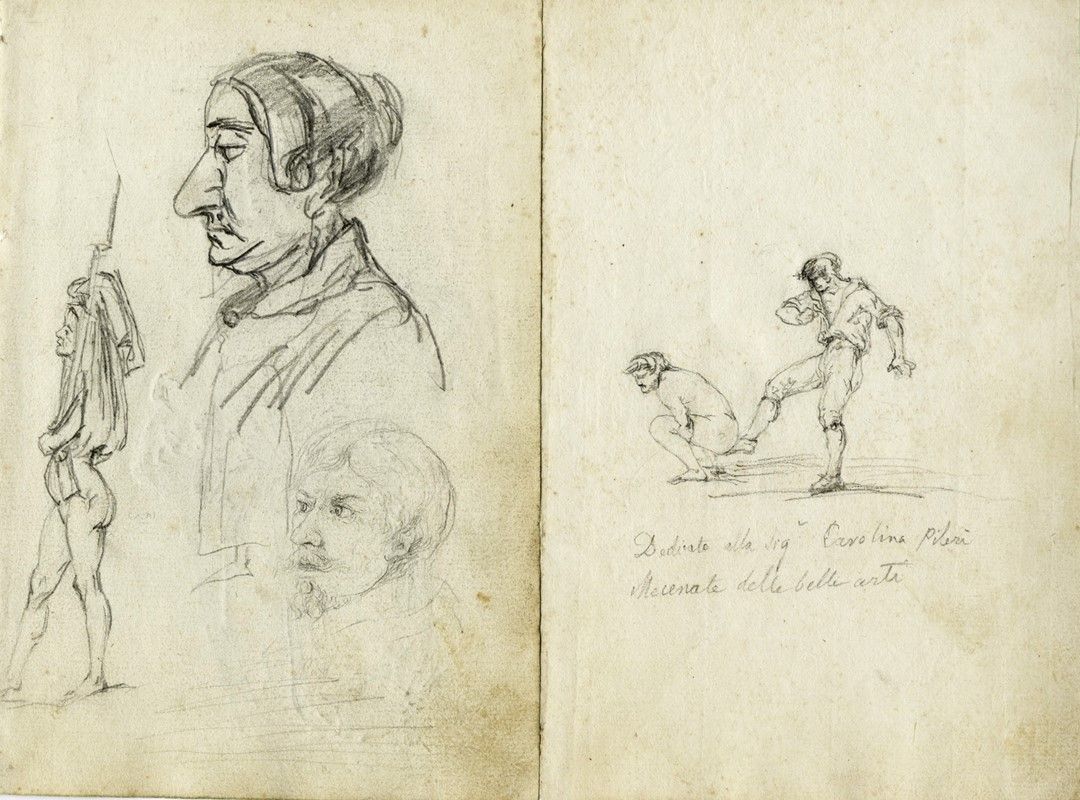 Dedicato alla Sig.ª Carolina Pileri
Mecenate delle belle arti